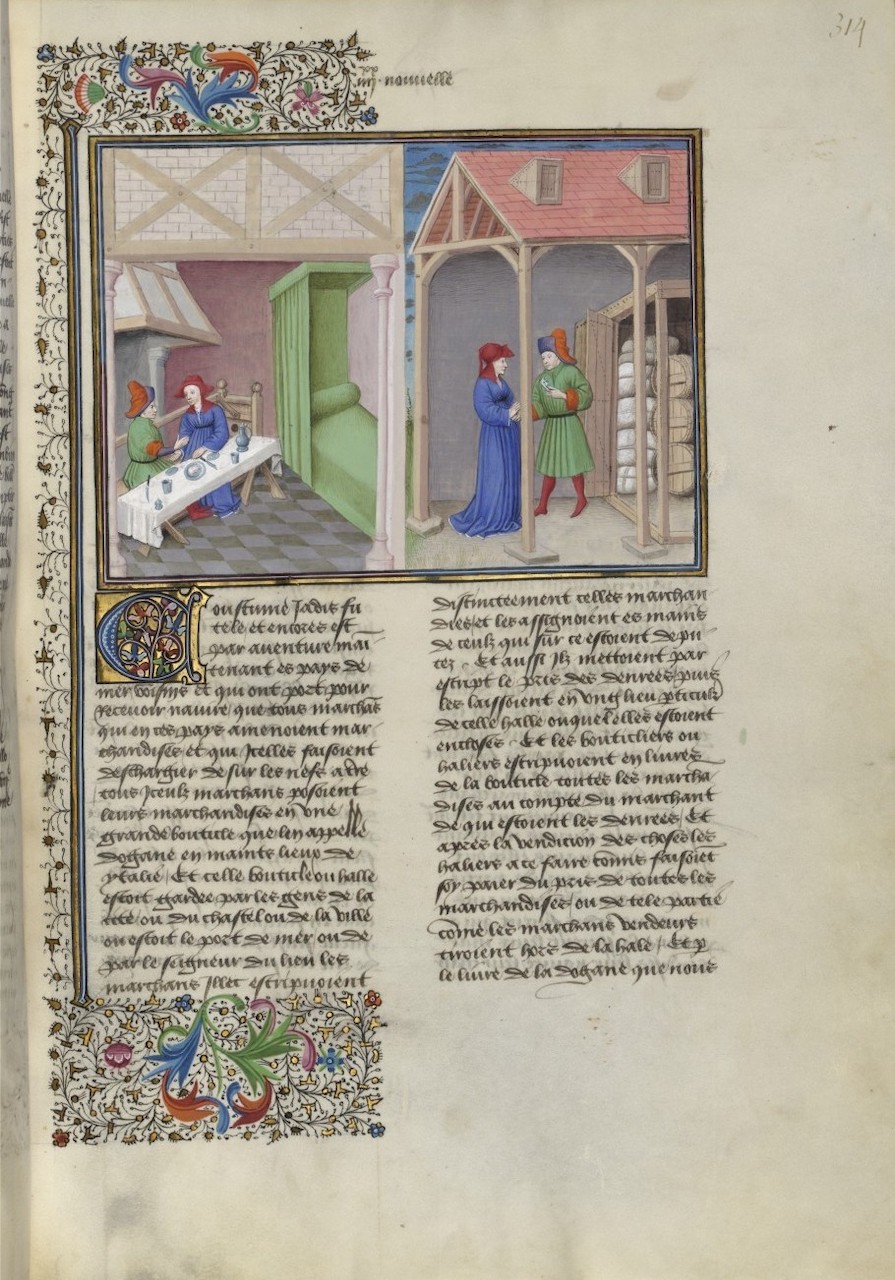 314
nouuelle
Coustume Jadis fu
tele et encores est
par auenture mai
tenant es pays de
mer voisins et qui ont port pour
Receuoir nauire que tous marchãs
qui en ces pays amenoient mar
chandises et qui Jcelles faisoient
deschargier de sur les nefs a t̃re
tous Jceulx marchans posoient
leurs marchandises en vne
grande bouticle que len appelle
dogane en maints lieux de
ytalie / Et celle bouticle ou halle
estoit gardee par les gens de la
cite ou du chastel ou de la ville
ou estoit le port de mer ou de
par le seigneur du lieu les
marchans Jllec escripuoient
distinctement celles marchan
dises et les assignoient es mains
de ceulx qui sur ce estoient depu
tez / Et aussi Ilz mettoient par
escript le pris des denrees puis
les laissoient en vng lieu p̱ticuler
de celle halle ouquel elles estoient
encloses / Et les bouticliers ou
haliers escripuoient en liures
de la bouticle toutes les marcha
dises au compte du marchant
de qui estoient les denrees / Et
apres la vendicion des choses les
haliers a ce faire cõmis faisoiẽt
soy paier du pris de toutes les
marchandises ou de tele partie
cõme les marchans vendeurs
tiroient hors de la hale / Et p̱
le liure de la dogane que nous